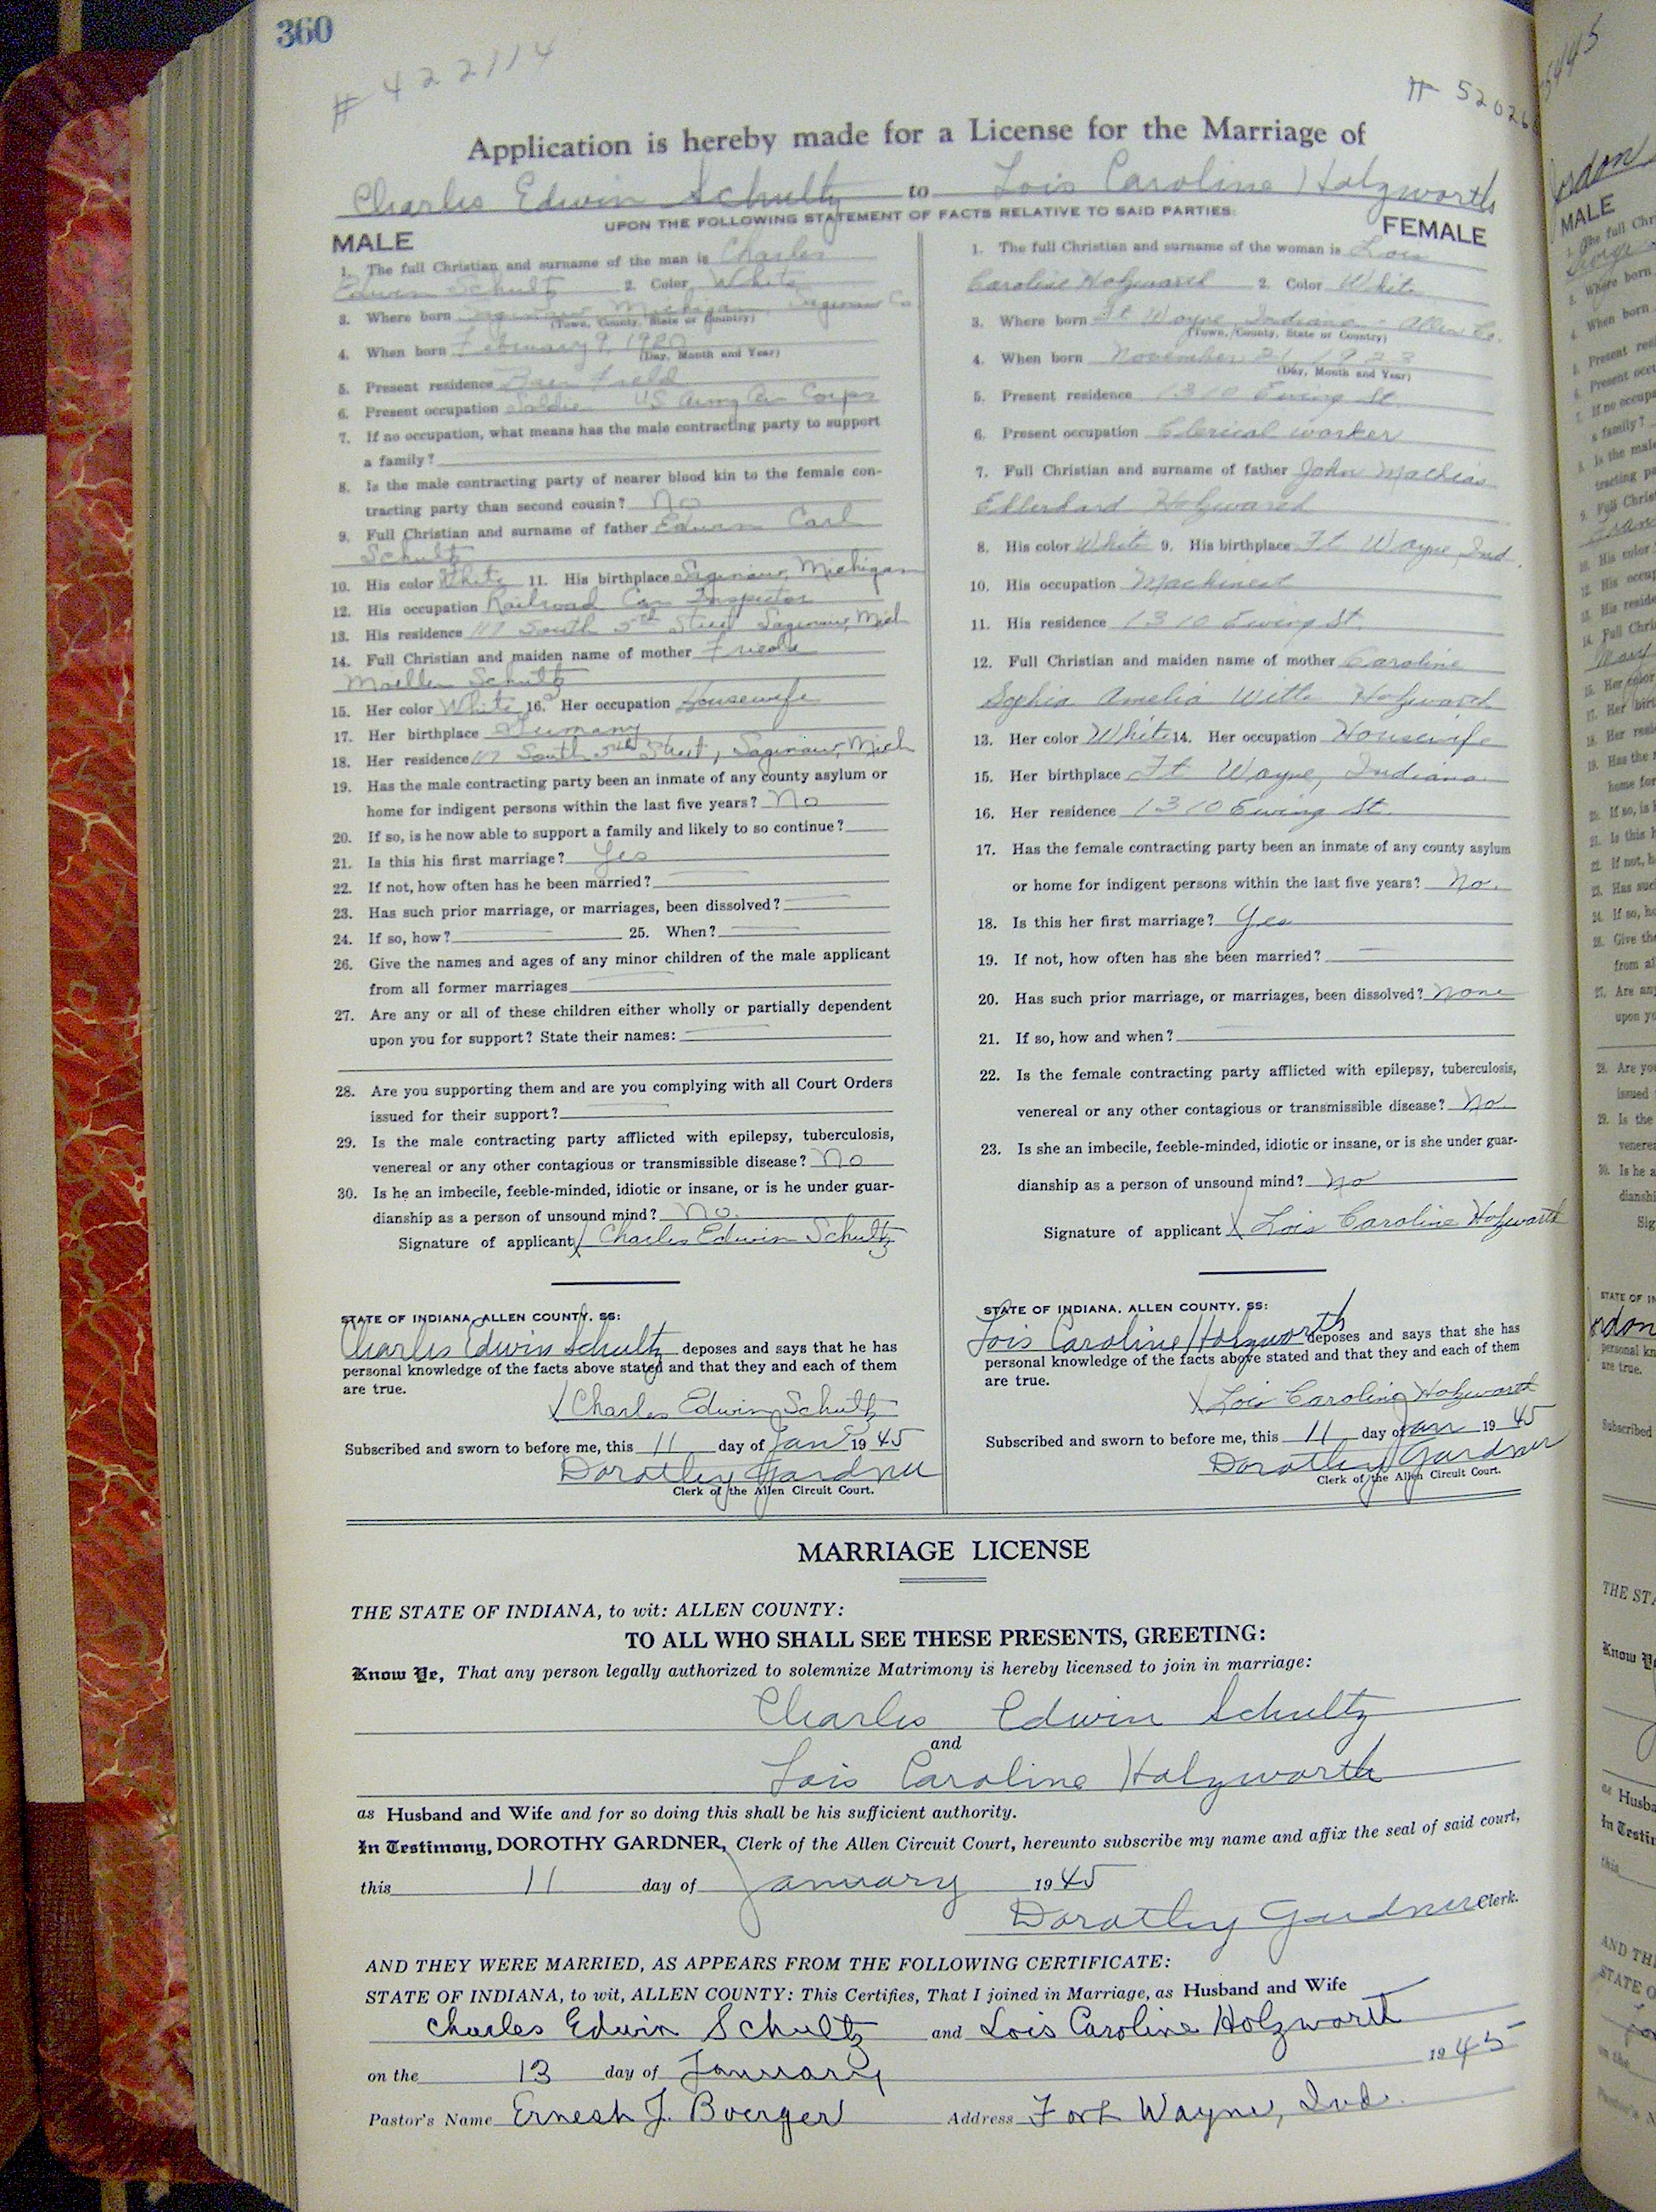 360
# 422114
# 52026
Application is hereby made for a License for the Marriage of
Charles Edwin Schultz to Lois Caroline Holzworth
UPON THE FOLLOWING STATEMENT OF FACTS RELATIVE TO SAID PARTIES
MALE
1. The full Christian and surname of the man is Charles
Edwin Schultz 2. Color White
3. Where born Saginaw Michigan, Saginaw Co
(Town, County, State or Country)
4. When born February 9, 1920
(Day, Month and Year)
5. Present residence Baer Field
6. Present occupation Soldier US Army Air Corps
7. If no occupation, what means has the male contracting party to support
a family?
8. Is the male contracting party of nearer blood kin to the female con-
tracting party than second cousin? No
9. Full Christian and surname of father Edwin Carl
Schultz
10. His color White 11. His birthplace Saginaw, Michigan
12. His occupation Railroad Car Inspector
13. His residence 117 South 5th Street Saginaw, Mich
14. Full Christian and maiden name of mother Frieda
Moeller Schultz
15. Her color White 16. Her occupation Housewife
17. Her birthplace Germany
18. Her residence 117 South 5th Street, Saginaw, Mich
19. Has the male contracting party been an inmate of any county asylum or
home for indigent persons within the last five years? No
20. If so, is he now able to support a family and likely to so continue?
21. Is this his first marriage? Yes
22. If not, how often has he been married?
23. Has such prior marriage, or marriages, been dissolved?
24. If so, how? 25. When?
26. Give the names and ages of any minor children of the male applicant
from all former marriages
27. Are any or all of these children either wholly or partially dependent
upon you for support? State their names:
28. Are you supporting them and are you complying with all Court Orders
issued for their support?
29. Is the male contracting party afflicted with epilepsy, tuberculosis,
venereal or any other contagious or transmissible disease? No
30. Is he an imbecile, feeble-minded, idiotic or insane, or is he under guar-
dianship as a person of unsound mind? No.
Signature of applicant X Charles Edwin Schultz
STATE OF INDIANA, ALLEN COUNTY, SS:
Charles Edwin Schultz deposes and says that he has
personal knowledge of the facts above stated and that they and each of them
are true.
X Charles Edwin Schultz
Subscribed and sworn to before me, this 11 day of Jan 19 45
Dorothy Gardner
Clerk of the Allen Circuit Court.
FEMALE
1. The full Christian and surname of the woman is Lois
Caroline Holzwarth 2. Color White
3. Where born Ft Wayne, Indiana Allen Co.
(Town, County, State or Country)
4. When born November 21, 1923
(Day, Month and Year)
5. Present residence 1310 Ewing St.
6. Present occupation Clerical worker
7. Full Christian and surname of father John Mathias
Holzwarth
8. His color White 9. His birthplace Ft Wayne, Ind.
10. His occupation Machinest
11. His residence 1310 Ewing St.
12. Full Christian and maiden name of mother Caroline
Sophia Amelia Witte Holzwarth
13. Her color White 14. Her occupation Housewife
15. Her birthplace Ft Wayne, Indiana
16. Her residence 1310 Ewing St.
17. Has the female contracting party been an inmate of any county asylum
or home for indigent persons within the last five years? No.
18. Is this her first marriage? Yes
19. If not, how often has she been married?
20. Has such prior marriage, or marriages, been dissolved? None
21. If so, how and when?
22. Is the female contracting party afflicted with epilepsy, tuberculosis,
venereal or any other contagious or transmissible disease? No
23. Is she an imbecile, feeble-minded, idiotic or insane, or is she under guar-
dianship as a person of unsound mind? No
Signature of applicant X Lois Caroline Holzwarth
STATE OF INDIANA, ALLEN COUNTY, SS:
Lois Caroline Holzworth deposes and says that she has
personal knowledge of the facts above stated and that they and each of them
are true.
X Lois Caroline Holzwarth
Subscribed and sworn to before me, this 11 day of Jan 19 45
Dorothy Gardner
Clerk of the Allen Circuit Court.
MARRIAGE LICENSE
THE STATE OF INDIANA, to wit: ALLEN COUNTY:
TO ALL WHO SHALL SEE THESE PRESENTS, GREETING:
Know Ye, That any person legally authorized to solemnize Matrimony is hereby licensed to join in marriage:
Charles Edwin Schultz
and
Lois Caroline Holzworth
as Husband and Wife and for so doing this shall be his sufficient authority.
In Testimony, DOROTHY GARDNER, Clerk of the Allen Circuit Court, hereunto subscribe my name and affix the seal of said court,
this 11 day of January 19 45
Dorothy Gardner Clerk.
AND THEY WERE MARRIED, AS APPEARS FROM THE FOLLOWING CERTIFICATE:
STATE OF INDIANA, to wit, ALLEN COUNTY: This Certifies, That I joined in Marriage, as Husband and Wife
Charles Edwin Schultz and Lois Caroline Holzworth
on the 13 day of January 19 45
Pastor's Name Ernest J. Boerger Address Fort Wayne, Ind.